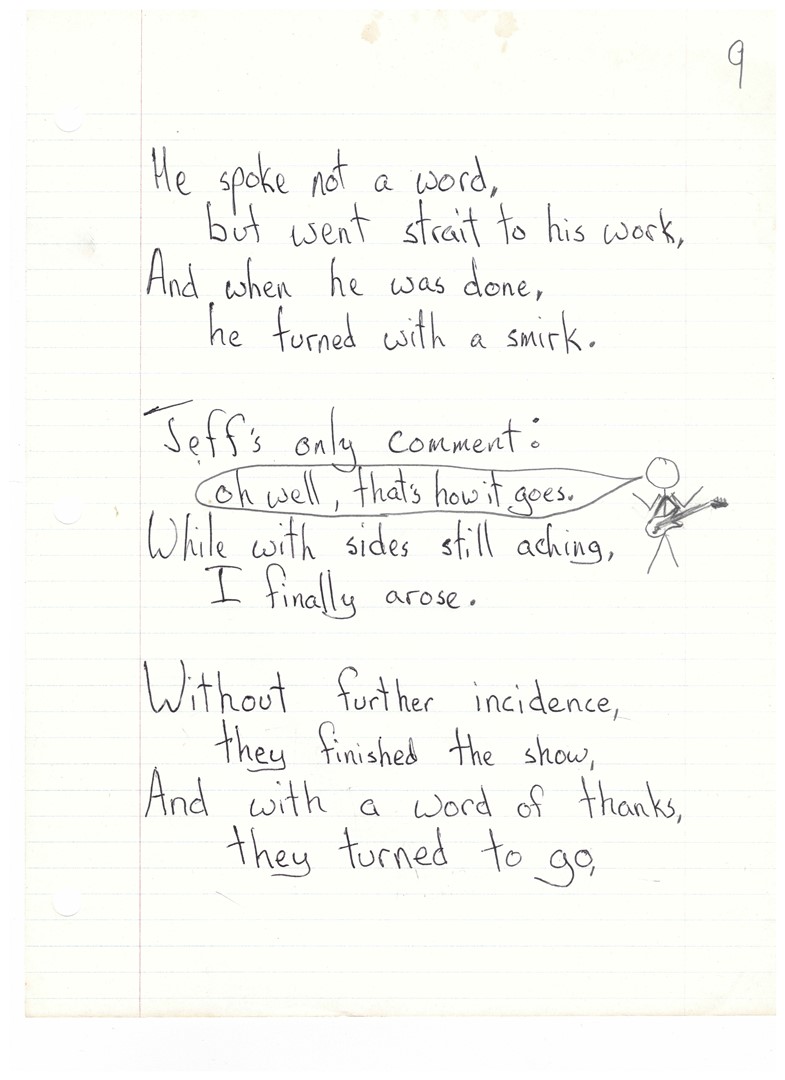 9
He spoke not a word,
but went strait to his work,
And when he was done,
he turned with a smirk.
Jeff's only comment:
oh well, that's how it goes.
While with sides still aching,
I finally arose.
Without further incidence,
they finished the show,
And with a word of thanks,
they turned to go,